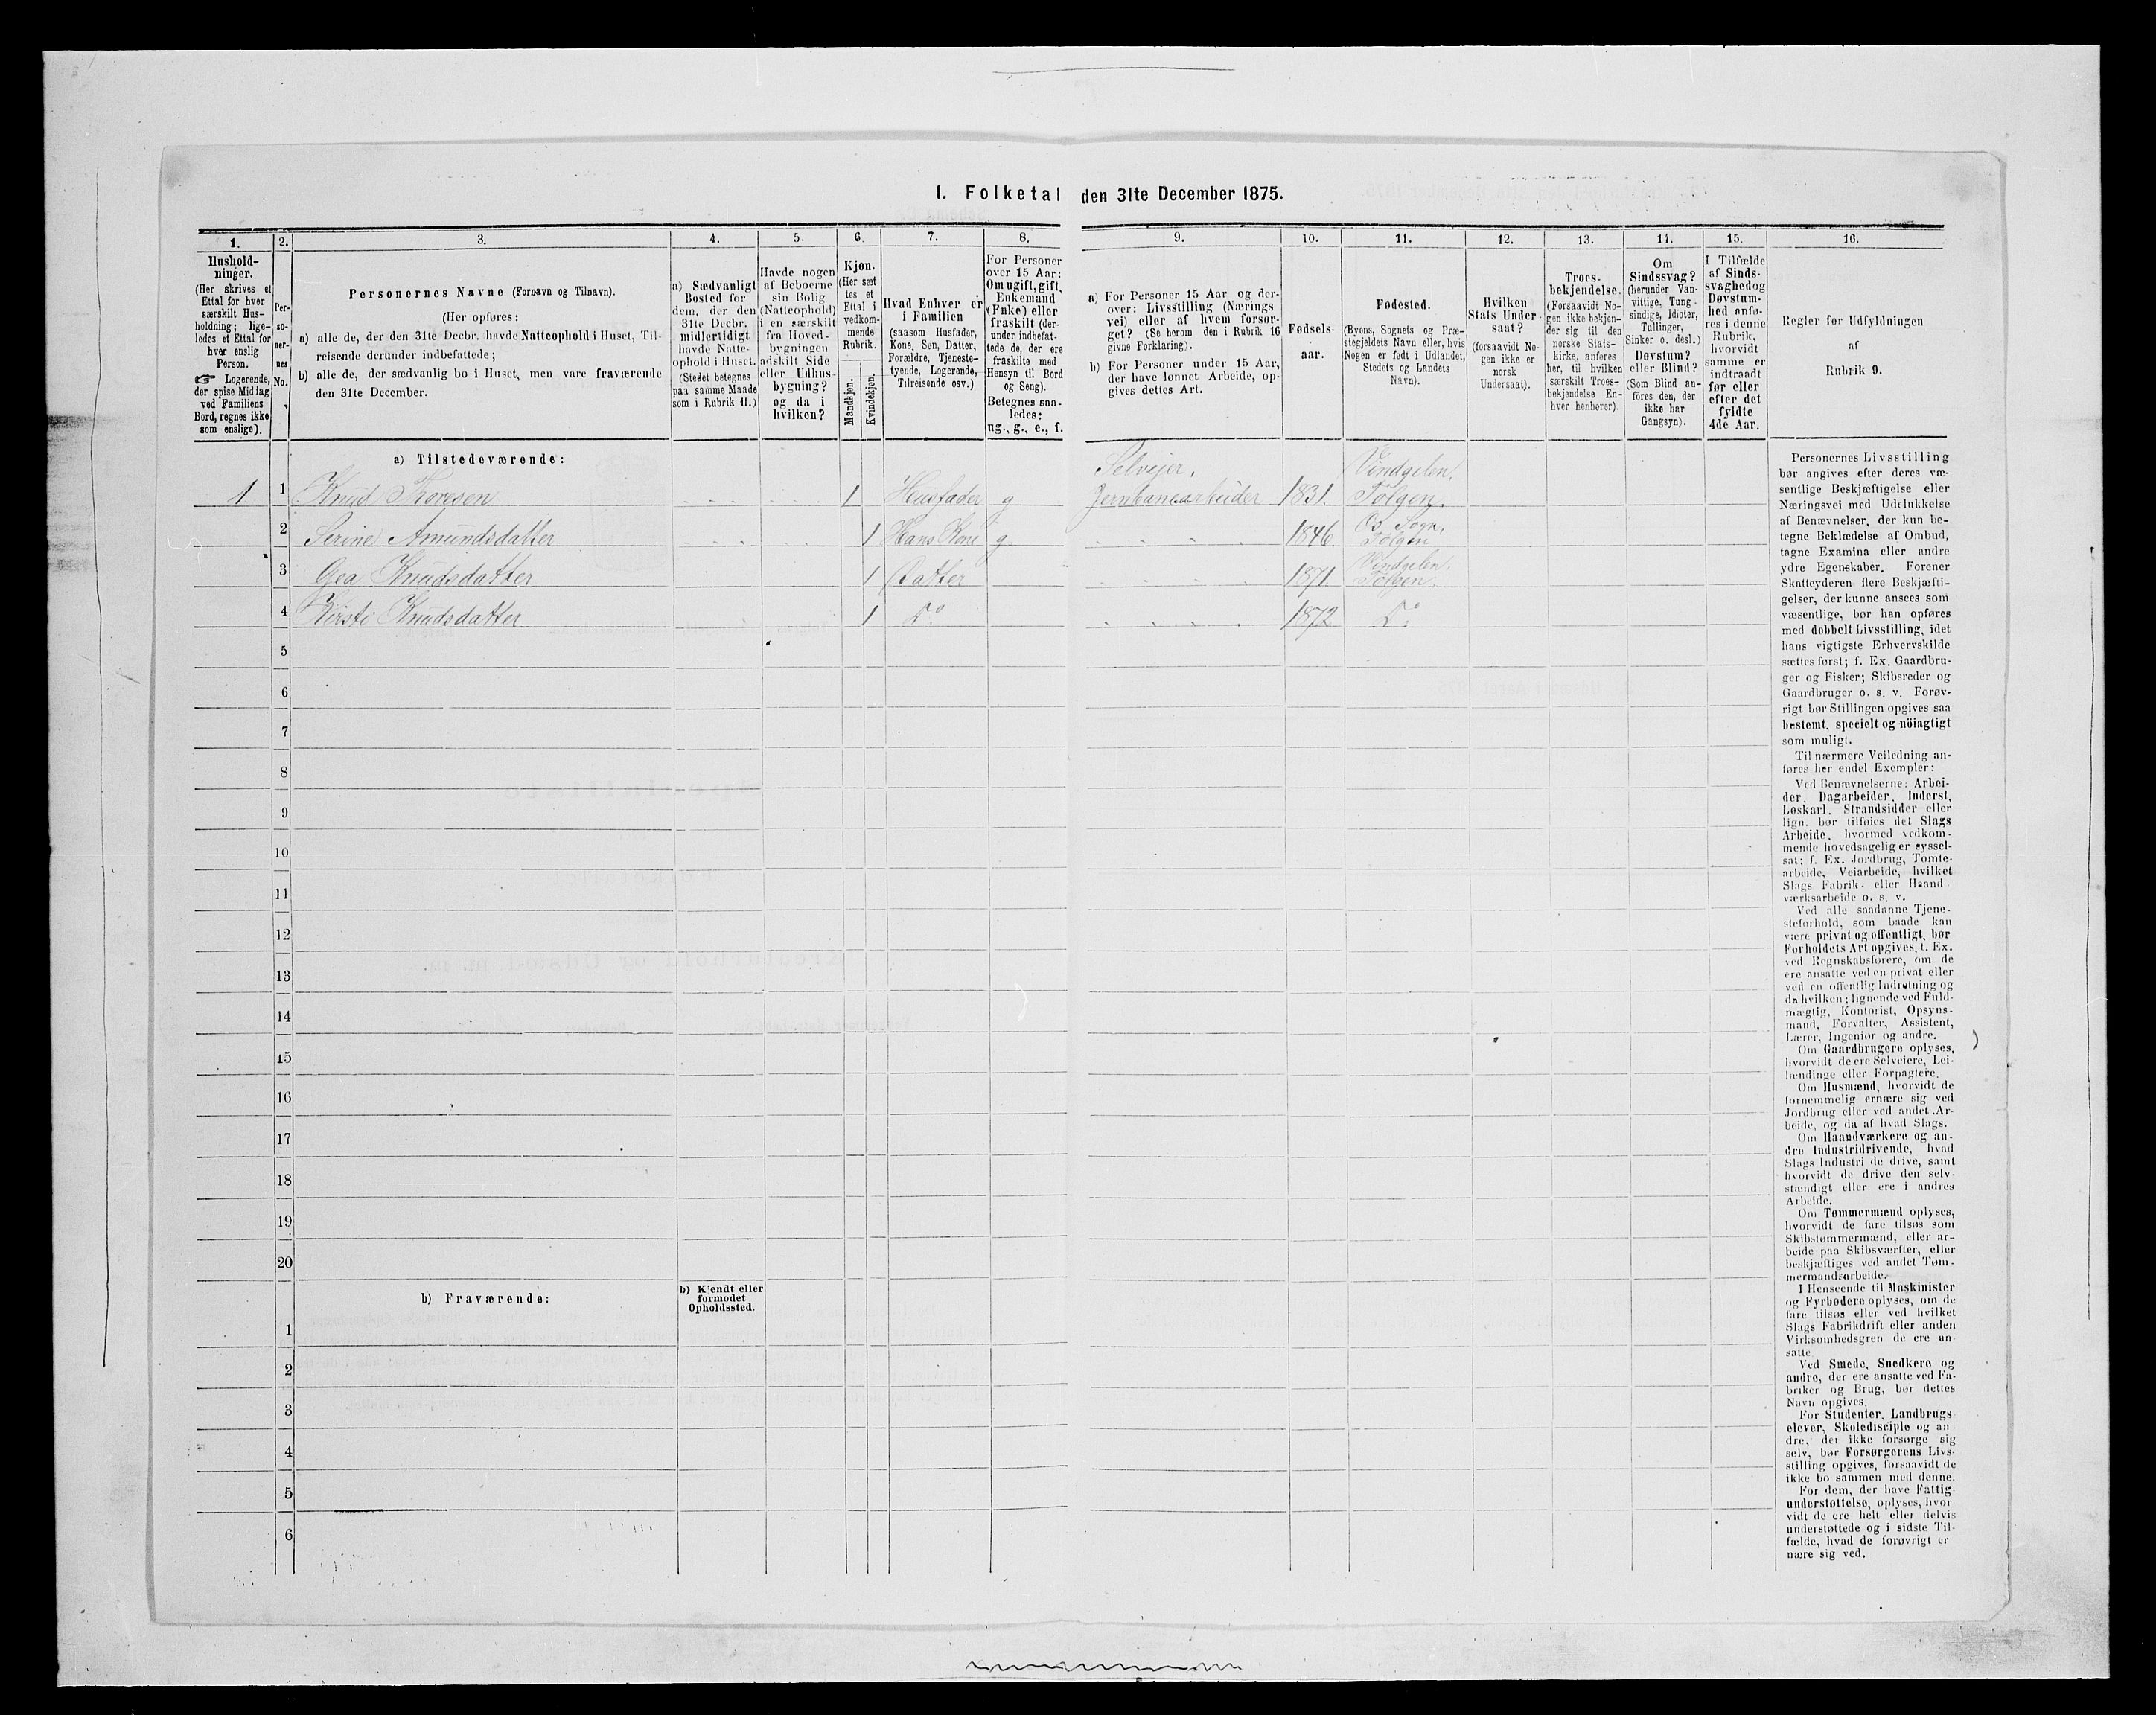 I. Folketal den 31te December 1875.
1.
Hushold-
ninger.
(Her skrives et
Ettal for hver
særskilt Hus-
holdning; lige-
ledes et Ettal for
hver enslig
Person.
☞ Logerende,
der spise Middag
ved Familiens
Bord, regnes ikke
som enslige).
2.
Per-
so-
ner-
nes
No.
3.
Personernes Navne (Fornavn og Tilnavn).
(Her opføres:
a) alle de, der den 31te Decbr. havde Natteophold i Huset, Til-
reisende derunder indbefattede;
b) alle de, der sædvanlig bo i Huset, men vare fraværende
den 31te December.
4.
a) Sædvanligt
Bosted for
dem, der den
31te Decbr.
midlertidigt
havde Natte-
ophold i Huset.
(Stedet betegnes
paa samme Maade
som i Rubrik 11.)
5.
Havde nogen
af Beboerne
sin Bolig
(Natteophold)
i en særskilt
fra Hoved-
bygningen
adskilt Side
eller Udhus-
bygning?
og da i
hvilken?
6.
Kjøn.
(Her sæt
tes et
Ettal i
vedkom-
mende
Rubrik.
Mandkjøn.
Kvindekjøn.
7.
Hvad Enhver er
i Familien
(saasom Husfader,
Kone, Søn, Datter,
Forældre, Tjeneste-
tyende, Logerende,
Tilreisende osv.)
8.
For Personer
over 15 Aar:
Om ugift, gift,
Enkemand
(Enke) eller
fraskilt (der-
under indbefat-
tede de, der ere
fraskilte med
Hensyn til Bord
og Seng).
Betegnes saa-
ledes:
ug., g., e., f.
9.
a) For Personer 15 Aar og der-
over: Livsstilling (Nærings
vei) eller af hvem forsør-
get? (Se herom den i Rubrik 16
givne Forklaring).
b) For Personer under 15 Aar,
der have lønnet Arbeide, op-
gives dettes Art.
10.
Fødsels-
aar.
11.
Fødested.
(Byens, Sognets og Præ-
stegjeldets Navn eller, hvis
Nogen er født i Udlandet,
Stedets og Landets
Navn).
12.
Hvilken
Stats Under-
saat?
(forsaavidt No-
gen ikke er
norsk
Undersaat).
13.
Troes-
bekjendelse.
(Forsaavidt No-
gen ikke bekjen-
der sig til den
norske Stats-
kirke, anføres
her, til hvilken
særskilt Troes-
bekjendelse En-
hver henhører).
14.
Om
Sindssvag?
(herunder Van-
vittige, Tung-
sindige, Idioter,
Tullinger,
Sinker o. desl.)
Døvstum?
eller Blind?
(Som Blind an-
føres den, der
ikke har
Gangsyn).
15.
I Tilfælde
af Sinds-
svaghed og
Døvstum-
hed anfø-
res i denne
Rubrik,
hvorvidt
samme er
indtraadt
før eller
efter det
fyldte
4de Aar.
16.
Regler for Udfyldningen
af
Rubrik 9.
a) Tilstedeværende:
Selvejer, Vindgelen,
1 1 Knud Toresen 1 Husfader g Jernbanearbeider 1831. Tolgen.
Os Sogn,
2 Serine Amundsdatter 1 Hans Kone g. 1846. Tolgen
Vindgelen,
3 Gea Knudsdatter 1 Datter 1871. Tolgen.
4 Kirsti Knudsdatter 1 Do 1872 Do
5
6
7
8
9
10
11
12
13
14
15
16
17
18
19
20
b) Fraværende:
b) Kjendt eller
formodet
Opholdssted.
1
2
3
4
5
6
Personernes Livsstilling
bør angives efter deres væ-
sentlige Beskjæftigelse eller
Næringsvei med Udelukkelse
af Benævnelser, der kun be-
tegne Beklædelse af Ombud,
tagne Examina eller andre
ydre Egenskaber. Forener
Skatteyderen flere Beskjæfti-
gelser, der kunne ansees som
væsentlige, bør han opføres
med dobbelt Livsstilling, idet
hans vigtigste Erhvervskilde
sættes først; f. Ex. Gaardbru-
ger og Fisker; Skibsreder og
Gaardbruger o. s. v. Forøv-
rigt bør Stillingen opgives saa
bestemt, specielt og nöiagtigt
som muligt.
Til nærmere Veiledning an-
føres her endel Exempler:
Ved Benævnelserne: Arbei-
der, Dagarbeider, Inderst,
Løskarl, Strandsidder eller
lign. bør tilføies det Slags
Arbeide, hvormed vedkom-
mende hovedsagelig er syssel-
sat; f. Ex. Jordbrug, Tomte-
arbeide, Veiarbeide, hvilket
Slags Fabrik- eller Haand-
værksarbeide o. s. v.
Ved alle saadanne Tjene-
steforhold, som baade kan
være privat og offentligt, bør
Forholdets Art opgives, t. Ex.
ved Regnskabsførere, om de
ere ansatte ved en privat eller
ved en offentlig Indretning og
da hvilken; lignende ved Fuld-
mægtig, Kontorist, Opsyns-
mand, Forvalter, Assistent,
Lærer, Ingeniør og andre.
Om Gaardbrugere oplyses,
hvorvidt de ere Selveiere, Lei-
lændinge eller Forpagtere.
Om Husmænd, hvorvidt de
fornemmelig ernære sig ved
Jordbrug eller ved andet Ar-
beide, og da af hvad Slags.
Om Haandværkere og an-
dre Industridrivende, hvad
Slags Industri de drive, samt
hvorvidt de drive den selv-
stændigt eller ere i andres
Arbeide.
Om Tømmermænd oplyses,
hvorvidt de fare tilsøs som
Skibstømmermænd, eller ar-
beide paa Skibsværfter, eller
beskjæftiges ved andet Tøm-
mermandsarbeide.
I Henseende til Maskinister
og Fyrbødere oplyses, om de
fare tilsøs eller ved hvilket
Slags Fabrikdrift eller anden
Virksomhedsgren de ere an-
satte.
Ved Smede, Snedkere og
andre, der ere ansatte ved Fa-
briker og Brug, bør dettes
Navn opgives.
For Studenter, Landbrugs-
elever, Skoledisciple og an-
dre, der ikke forsørge sig
selv, bør Forsørgerens Livs-
stilling opgives, forsaavidt de
ikke bo sammen med denne.
For dem, der have Fattig-
understøttelse, oplyses, hvor-
vidt de ere helt eller delvis
understøttede og i sidste Til-
fælde, hvad de forøvrigt er
nære sig ved.